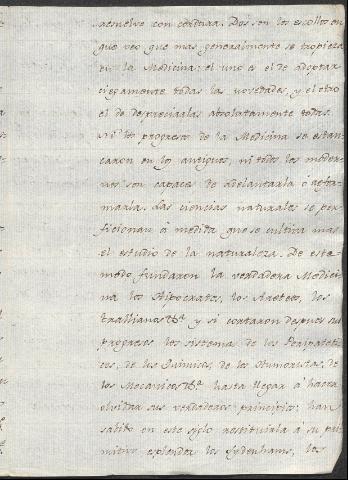 resuelve con cordura. Dos son los escollos en
que veo que mas generalmente se tropieza
en la Medicina: el uno es el de adoptar
ciegamente todas las novedades, y el otro
el de despreciarlas absolutamente todas.
Ni los progresos de la Medicina se estan-
caron en los antiguos, ni todos los moder-
nos son capaces de adelantarla ó refor-
marla. Las ciencias naturales se per-
ficionan á medida que se cultiva mas
el estudio de la naturaleza. De este
modo fundaron la verdadera Medici-
na los Hipocrates, los Areteos, los
trallianos &ª y si cortaron despues sus
progresos los sistemas de los Peripateti-
cos, de los Quimicos, de los Humoristas, de
los Mecanicos &ª hasta llegar á hacer
olvidar sus verdaderos principios; han
sabido en este siglo restituirla á su pri-
mitivo esplendor los Sydenhams, los